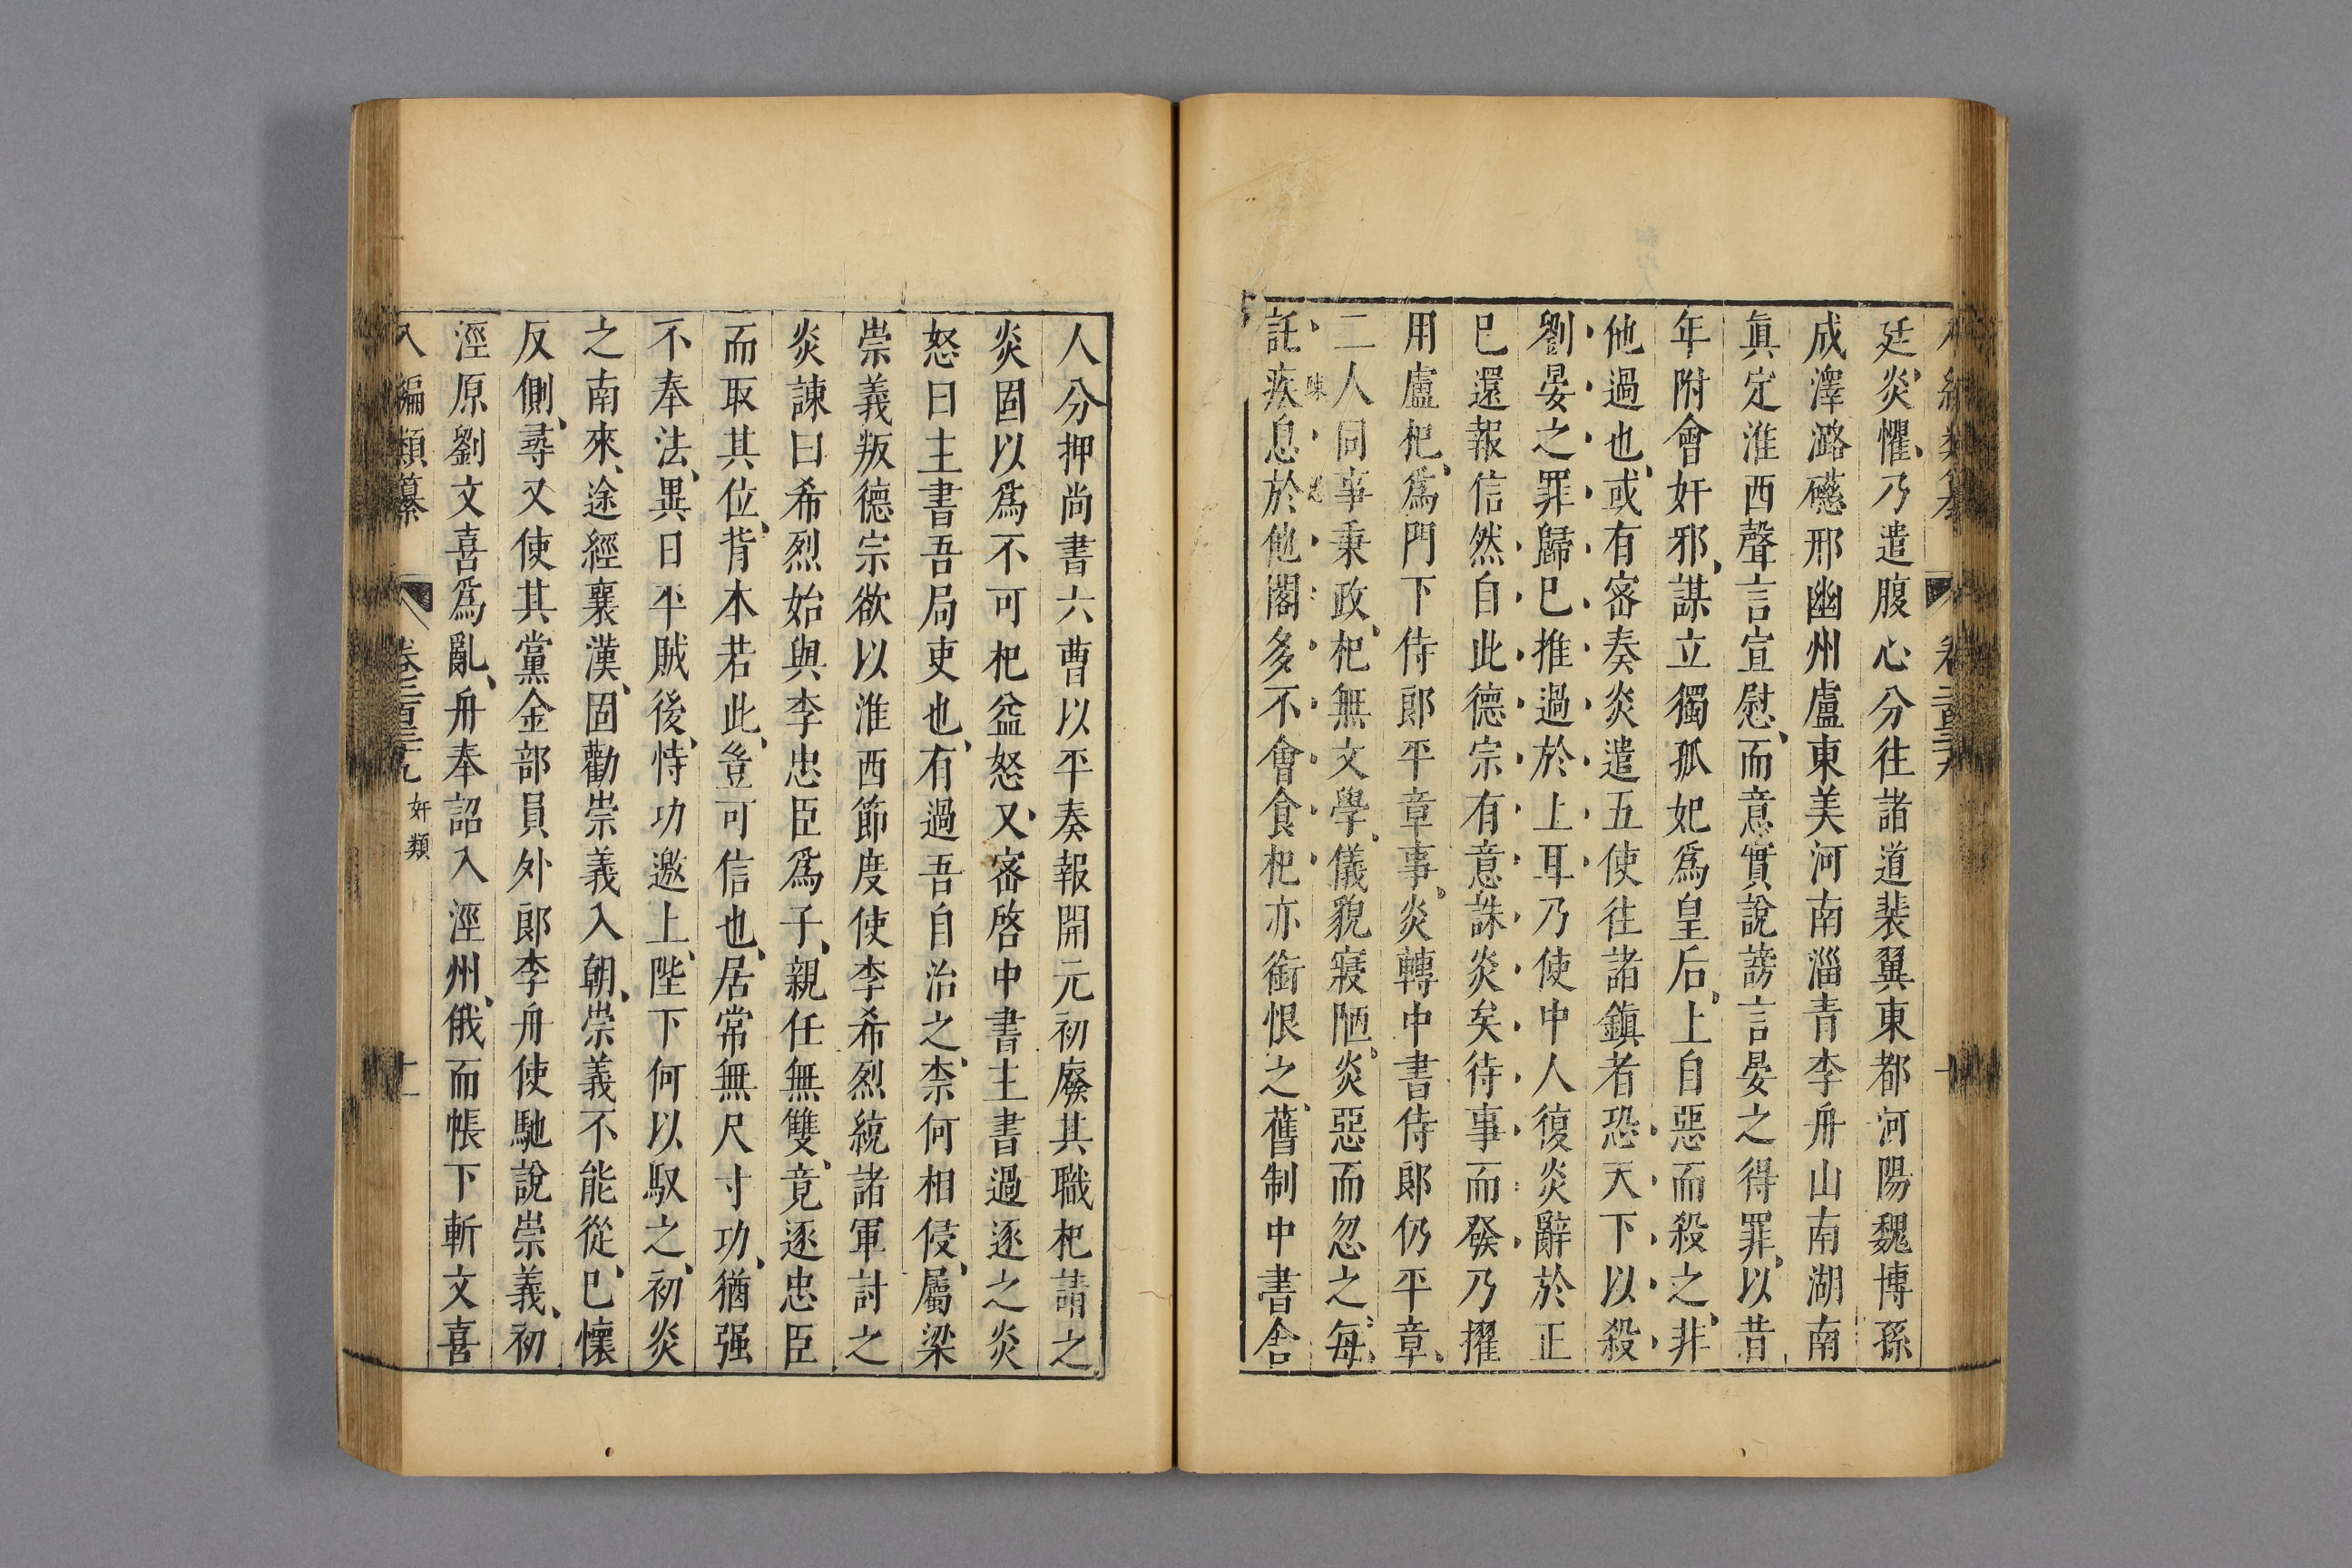 廷炎懼乃遣腹心分往諸道裴翼東都河陽魏博孫
成澤潞磁邢幽州盧東美河南淄青李舟山南湖南
眞定淮西聲言宣慰而意實說謗言晏之得罪以昔
年附會奸邪謀立獨孤妃爲皇后上自惡而殺之非
他過也或有密奏炎遣五使往諸鎮者恐天下以殺
劉晏之罪歸巳推過於上耳乃使中人復炎辭於正
巳還報信然自此德宗有意誅炎矣待事而發乃擢
用盧杞爲門下侍郎平章事炎轉中書侍郎仍平章
二人同事秉政杞無文學儀貌寢陋炎惡而忽之每
託疾息於他閣多不會食杞亦銜恨之舊制中書舍
人分押尚書六曹以平奏報開元初廢其職杞請之
炎固以爲不可杞益怒又密啓中書主書過逐之炎
怒曰主書吾局吏也有過吾自治之柰何相侵屬梁
崇義叛德宗欲以淮西節度使李希烈統諸軍討之
炎諫曰希烈始與李忠臣爲子親任無雙竟逐忠臣
而取其位背本若此豈可信也居常無尺寸功猶强
不奉法異日平賊後恃功邀上陛下何以馭之初炎
之南來途經襄漢固勸崇義入朝崇義不能從巳懷
反側尋又使其黨金部員外郎李舟使馳說崇義初
涇原劉文喜爲亂舟奉詔入涇州俄而帳下斬文喜
編類纂 卷三百三十九 奸類 十一